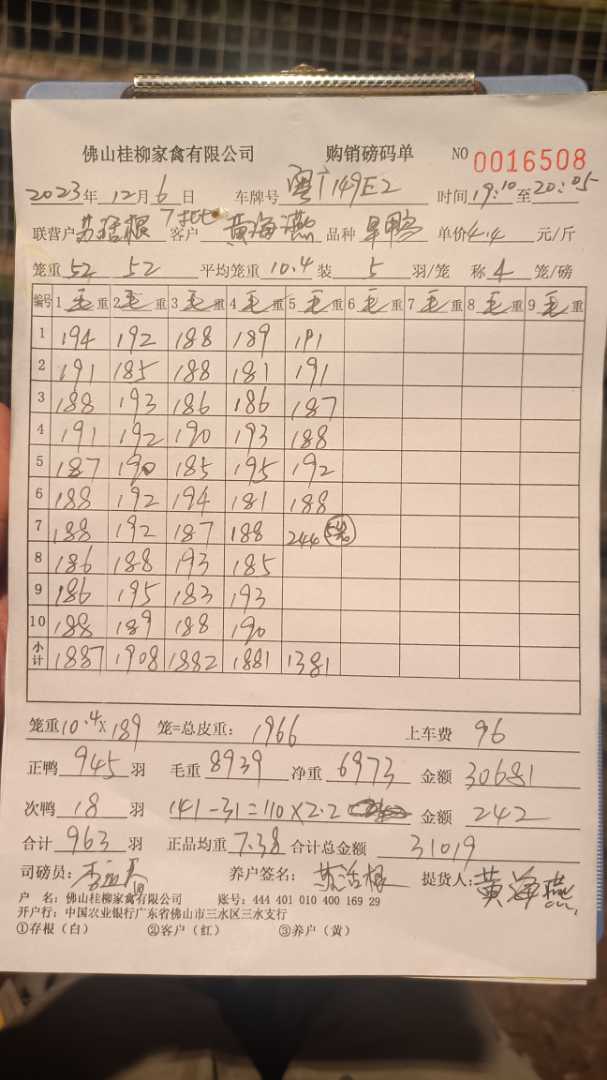 佛山桂柳家禽有限公司 购销磅码单 NO 0016508
2023年12月6日 车牌号 粤T149E2 时间19:10至20:05
联营户苏活根 7批 客户 黄海燕 品种 单价4.4 元/斤
笼重 52 52 平均笼重 10.4 装 5 羽/笼 称 4 笼/磅
编号 1毛重 2毛重 3毛重 4毛重 5毛重 6毛重 7毛重 8毛重 9毛重
1 194 192 188 189 191
2 191 185 188 181 191
3 188 193 186 186 187
4 191 192 190 193 188
5 187 190 185 195 192
6 188 192 194 181 188
7 188 192 187 188 244
8 186 188 193 185
9 186 195 183 193
10 188 189 188 190
小计 1887 1908 1882 1881 1381
笼重10.4×189 笼=总皮重: 1966 上车费 96
正鸭 945 羽 毛重 8939 净重 6973 金额 30681
次鸭 18 羽 141-31=110×2.2 金额 242
合计 963 羽 正品均重 7.38 合计总金额 31019
司磅员: 养户签名: 苏活根 提货人: 黄海燕
户 名: 佛山桂柳家禽有限公司 账号: 444 401 010 400 169 29
开户行: 中国农业银行广东省佛山市三水区三水支行
①存根（白） ②客户（红） ③养户（黄）